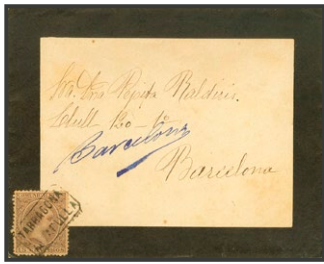 Sra. Dña Pepita Baldiris.
120 - 1º
Barcelona
Barcelona
TARRAGONA